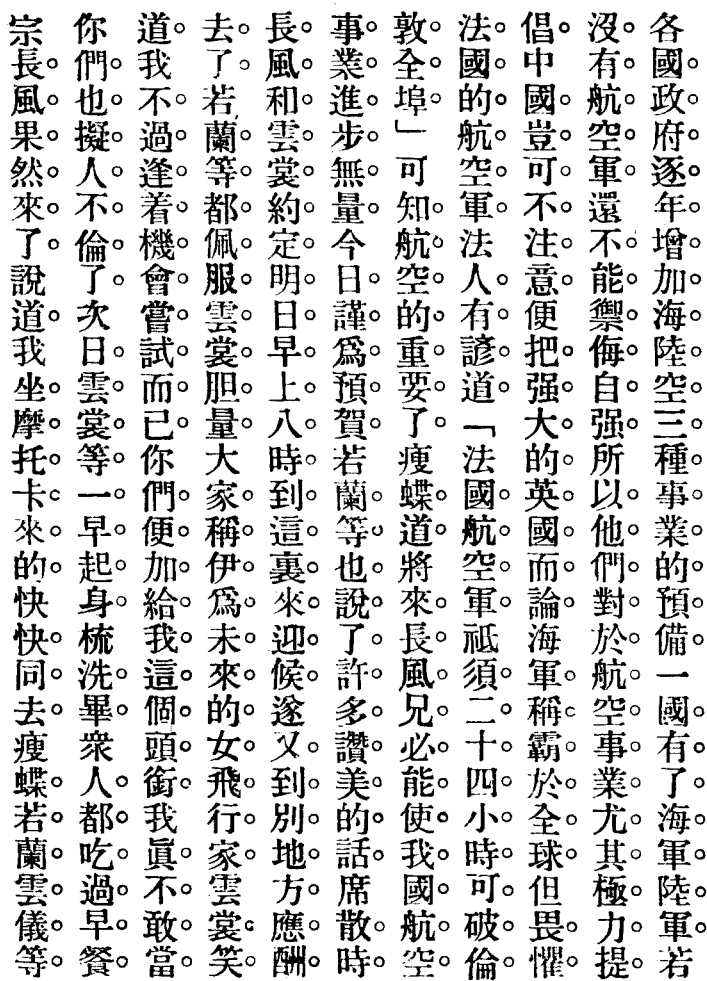 各國政府逐年增加海陸空三種事業的預備一國有了海軍陸軍若
沒有航空軍還不能禦侮自强所以他們對於航空事業尤其極力提
倡中國豈可不注意便把强大的英國而論海軍稱霸於全球但畏懼
法國的航空軍法人有諺道「法國航空軍祗須二十四小時可破倫
敦全埠」可知航空的重要了瘦蝶道將來長風兄必能使我國航空
事業進步無量今日謹爲預賀若蘭等也說了許多讚美的話席散時
長風和雲裳約定明日早上八時到這裏來迎候遂又到別地方應酬
去了若蘭等都佩服雲裳胆量大家稱伊爲未來的女飛行家雲裳笑
道我不過逢着機會嘗試而已你們便加給我這個頭銜我眞不敢當
你們也擬人不倫了次日雲裳等一早起身梳洗畢衆人都吃過早餐
宗長風果然來了說道我坐摩托卡來的快快同去瘦蝶若蘭雲儀等